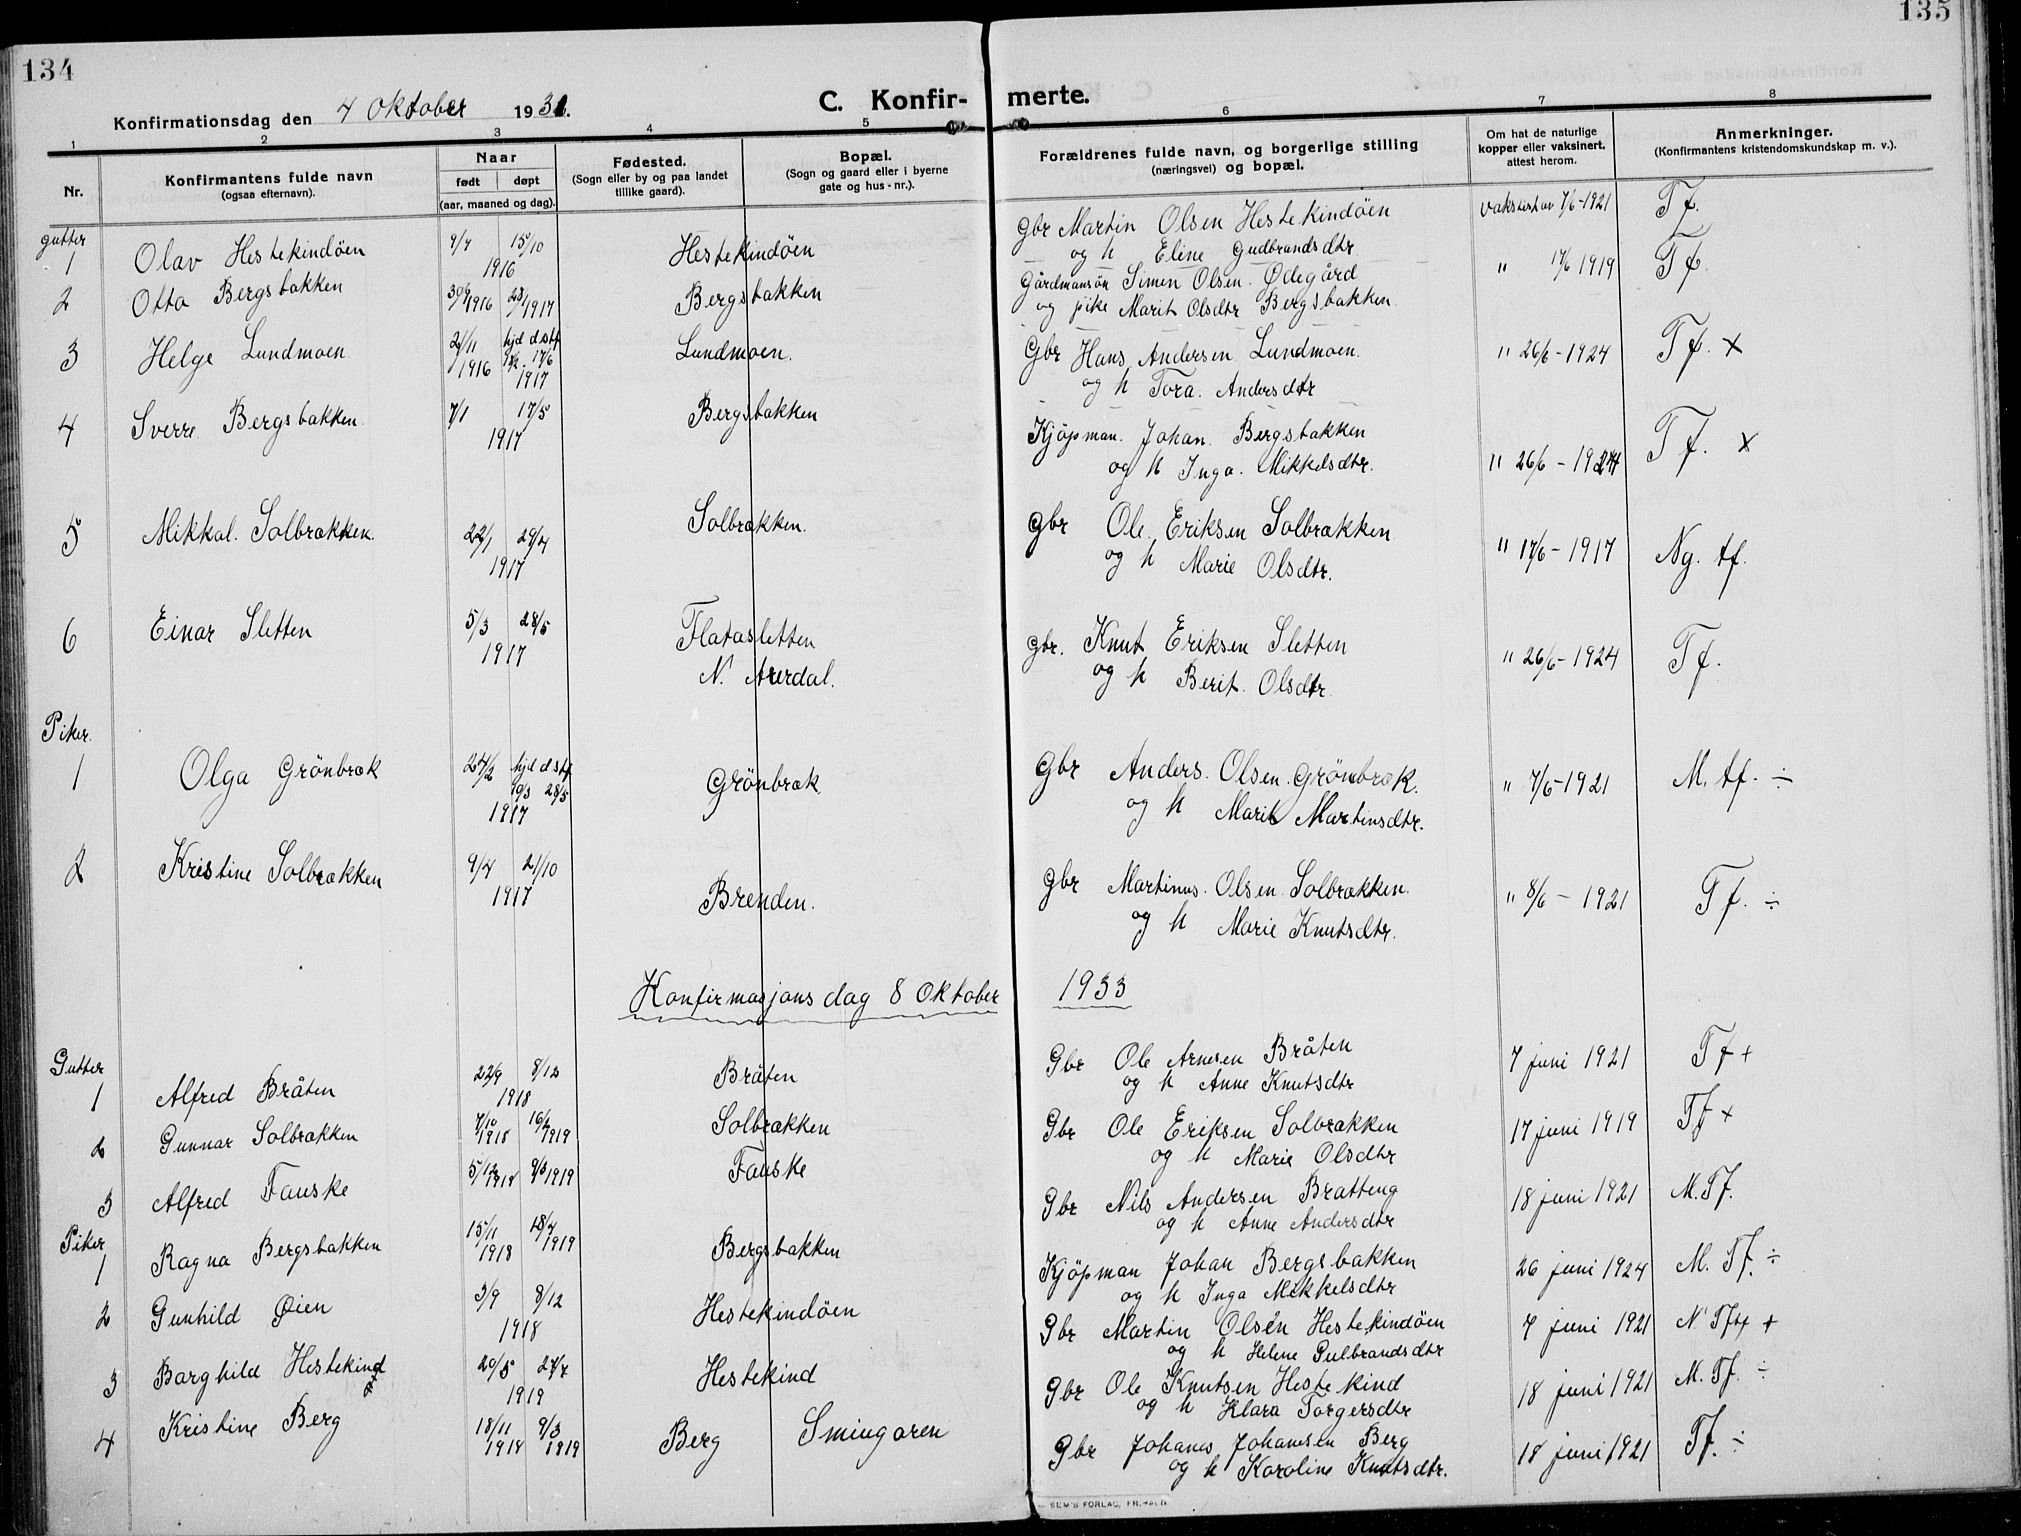 134
135
Konfirmationsdag den 4 Oktober 1931.
C. Konfir- merte.
1 2 3 4 5 6 7 8
Nr.
Konfirmantens fulde navn
(ogsaa efternavn).
Naar
født døpt
(aar, maaned og dag).
Fødested.
(Sogn eller by og paa landet
tillike gaard).
Bopæl.
(Sogn og gaard eller i byerne
gate og hus-nr.).
Forældrenes fulde navn, og borgerlige stilling
(næringsvei) og bopæl.
Om hat de naturlige
kopper eller vaksinert,
attest herom.
Anmerkninger.
(Konfirmantens kristendomskundskap m. v.).
gutter
1 Olav Hestekindöen 9/4 15/10 1916 Hestekindöen Gbr Martin Olsen Hestekindöen 7/6-1921 Tf.
og h Eline Gudbrandsdtr
2 Otto Bergsbakken 30/6 1916 1917 Bergsbakken Gårdmansön Simen Olsen Ødegård " 17/6 1919 Tf.
og pike Marit Olsdtr Bergsbakken
3 Helge Lundmoen 2/11 1916 hjd dstf 17/6 1917 Lundmoen. Gbr Hans Andersen Lundmoen. " 26/6-1924 Tf. x
og h Tora. Andersdtr
4 Sverre Bergsbakken. 7/1 17/5 1917 Bergsbakken Kjöpman. Johan. Bergsbakken
og h Inga. Mikkelsdtr. " 26/6 - 1924 Tf. x
5 Mikkal. Solbrækken. 22/1 29/4 1917 Solbrækken. Gbr Ole. Eriksen Solbrækken " 17/6 - 1917 Ng. tf.
og h Marie Olsdtr.
6 Einar Sletten 5/3 28/5 1917 Flatasletten Gbr. Knut Eriksen Sletten " 26/6-1924 Tf.
N. Aurdal. og h Berit. Olsdtr.
Piker.
1 Olga Grönbræk 24/2 hjd dstf 28/5 1917 Grönbræk Gbr Anders. Olsen. Grönbræk. " 7/6-1921 M. tf. ÷
og h Marit Martinsdtr.
2 Kristine Solbrækken 9/4 21/10 1917 Brenden. Gbr Martinus. Olsen. Solbrækken. " 8/6 - 1921 Tf. ÷
og h Marie Knutsdtr.
Konfirmasjons dag 8 Oktober 1933
Gutter
1 Alfred Bråten 22/9 8/12 1918 Bråten Gbr Ole Arnesen Bråten 7 juni 1921 Tf +
og h Anne Knutsdtr
2 Gunnar Solbrækken 7/10 1918 1919 Solbrækken Gbr Ole Eriksen Solbrækken 17 juni 1919 Tf +
og h Marie Olsdtr
3 Alfred Fauske 5/12 9/3 1919 Fauske Gbr Nils Andersen Bratteng 18 juni 1921 M. Tf.
og h Anne Andersdtr
Piker
1 Ragna Bergsbakken 15/11 1918 18/4 1919 Bergsbakken Kjöpman Johan Bergsbakken 26 juni 1924 M. Tf. ÷
og h Inga Mikkelsdtr
2 Gunhild Øien 3/9 8/12 1918 Hestekindöen Gbr Martin Olsen Hestekindöen 7 juni 1921 +
og h Helene Gulbrandsdtr
3 Borghild Hestekind 20/5 27/7 1919 Hestekind Gbr Ole Knutsen Hestekind 18 juni 1921 M. Tf. ÷
og h Klara Torgersdtr
4 Kristine Berg 18/11 1918 9/3 1919 Berg Smiugaren Gbr Johanes Johanesen Berg 18 juni 1921 Tf. ÷
og h Karoline Knutsdtr.
SEM'S FORLAG, FR.HALD